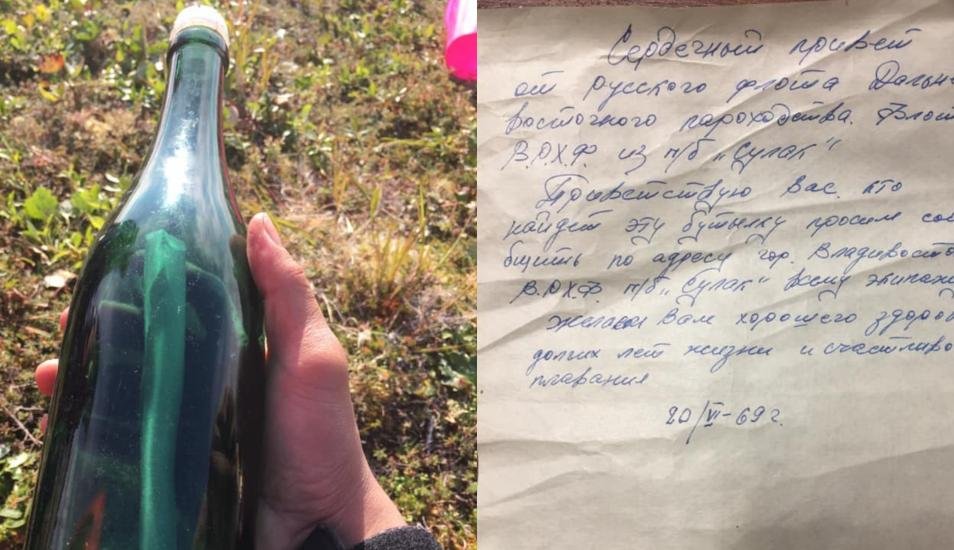 Сердечный привет
от русского флота Дальне
восточного пароходства. Флот
В.Р.Х.Ф. из п/б „Сулак"
Приветствую Вас. кто
найдет эту бутылку просим соо
бщить по адресу гор. Владивосто
В.Р.Х.Ф. п/б „Сулак" всему экипажу
желаем Вам хорошего здоров
долгих лет жизни и счастливо
плавания
20/VI-69 г.